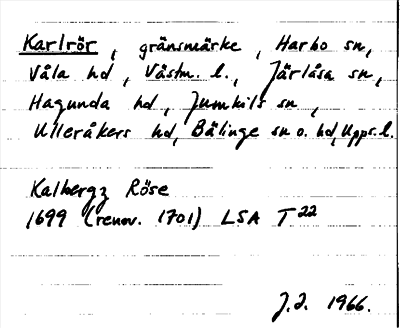 Karlrör, gränsmärke, Harbo sn,
Våla hd, Västm. l., Järlåsa sn,
Hagunda hd, Jumkils sn,
Ulleråkers hd, Bälinge sn o. hd, Upps. l.
Kalbergz Röse
1699 (renov. 1701) LSA T 22
J.I. 1966.